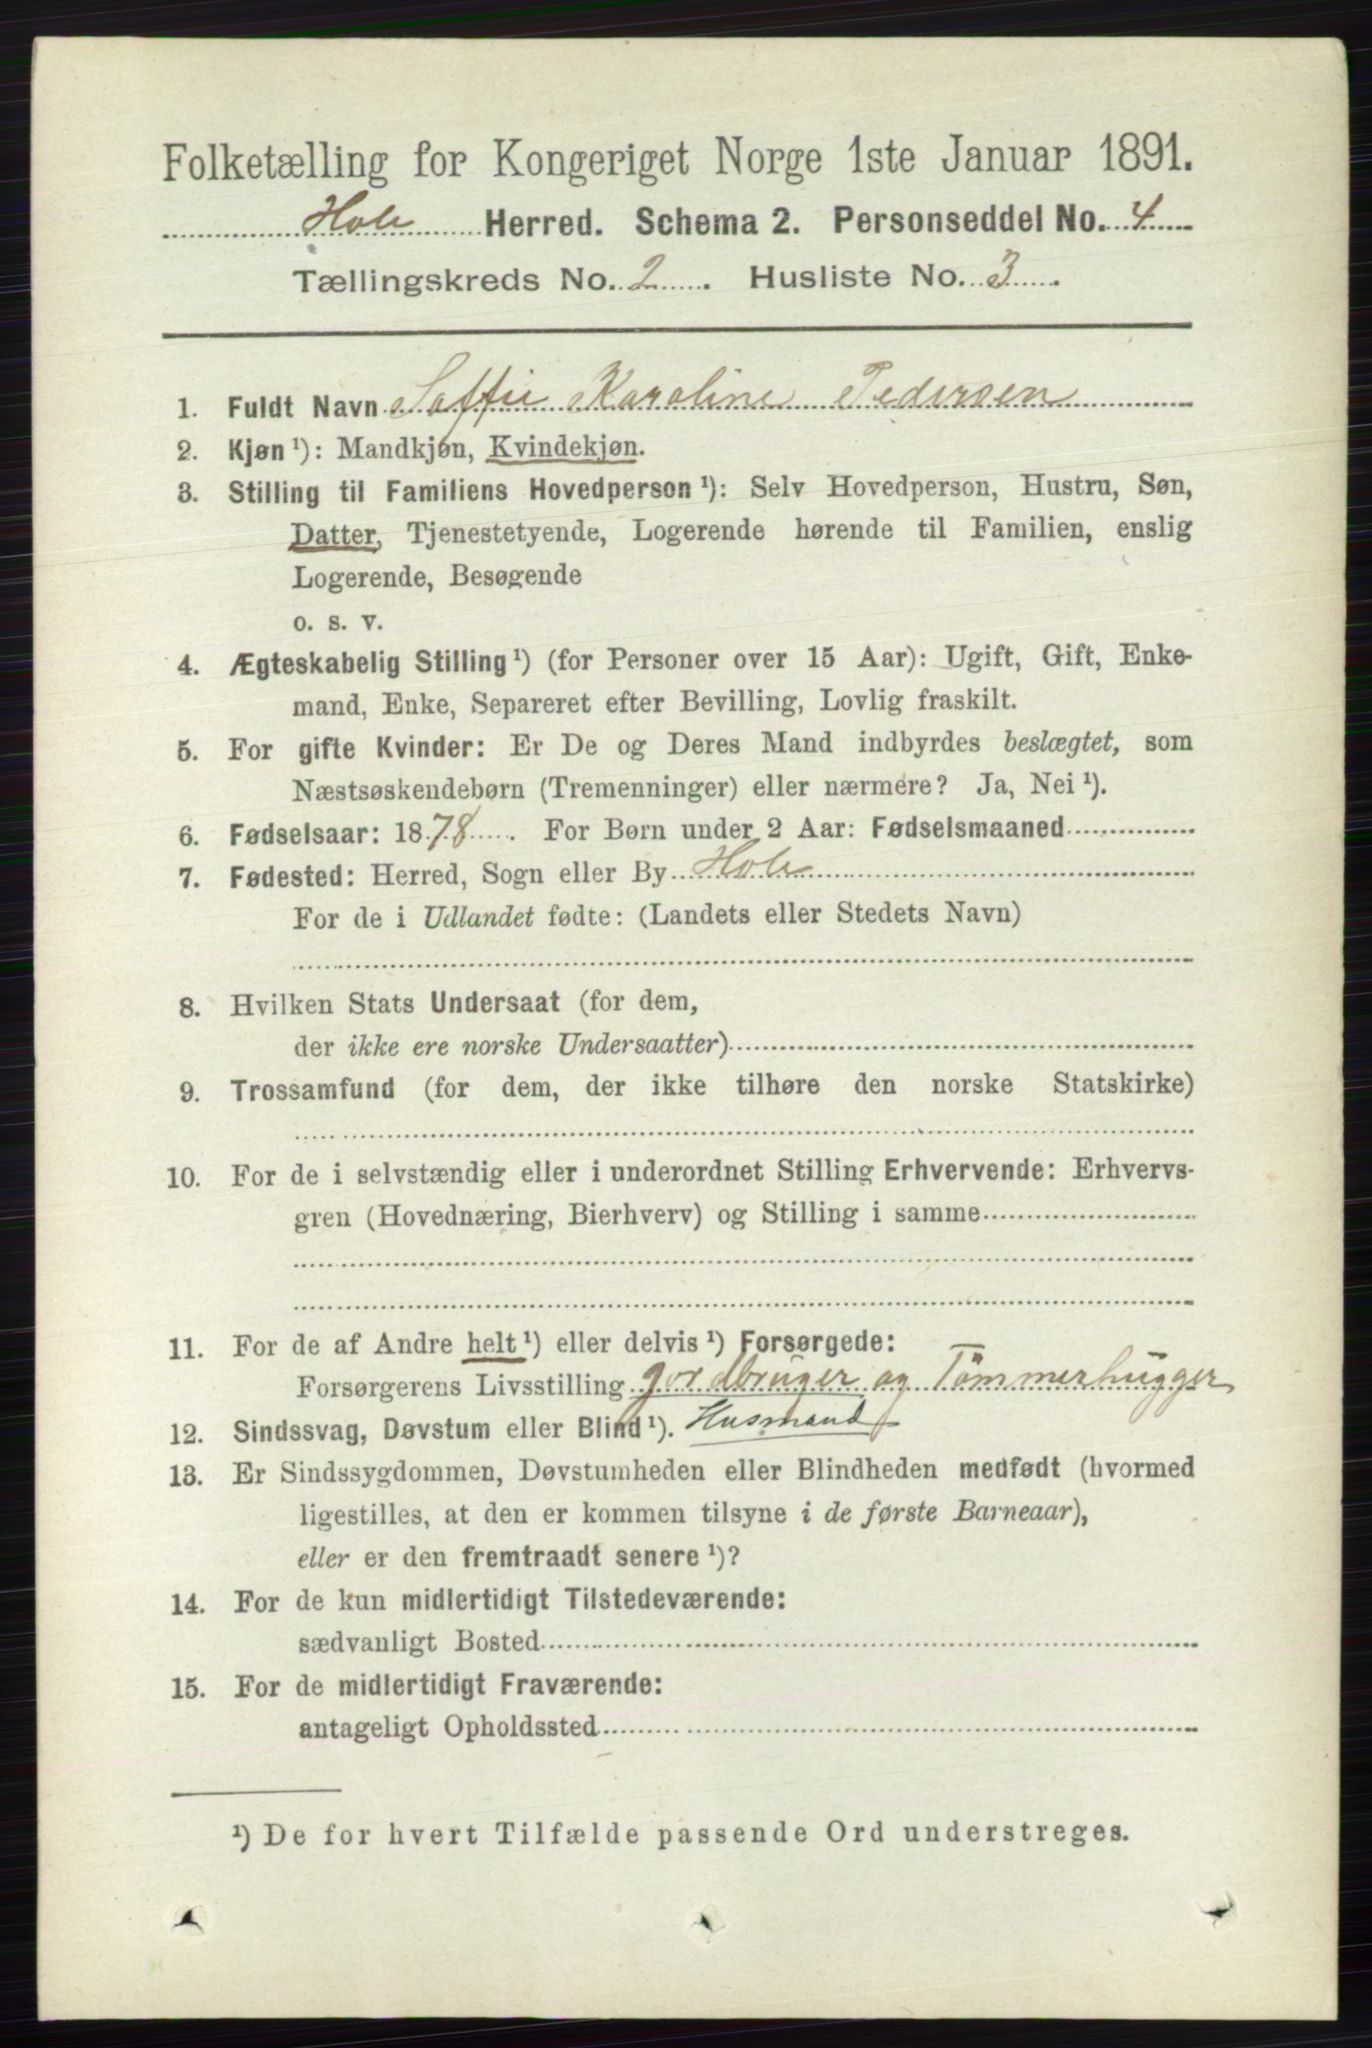 Folketælling for Kongeriget Norge 1ste Januar 1891.
Hole Herred. Schema 2. Personseddel No. 4
Tællingskreds No. 2. Husliste No. 3.
1. Fuldt Navn Soffie Karoline Pedersen
2. Kjøn ¹): Mandkjøn, Kvindekjøn.
3. Stilling til Familiens Hovedperson ¹): Selv Hovedperson, Hustru, Søn,
Datter, Tjenestetyende, Logerende hørende til Familien, enslig
Logerende, Besøgende
o. s. v.
4. Ægteskabelig Stilling ¹) (for Personer over 15 Aar): Ugift, Gift, Enke-
mand, Enke, Separeret efter Bevilling, Lovlig fraskilt.
5. For gifte Kvinder: Er De og Deres Mand indbyrdes beslægtet, som
Næstsøskendebørn (Tremenninger) eller nærmere? Ja, Nei ¹).
6. Fødselsaar: 1878. For Børn under 2 Aar: Fødselsmaaned
7. Fødested: Herred, Sogn eller By Hole
For de i Udlandet fødte: (Landets eller Stedets Navn)
8. Hvilken Stats Undersaat (for dem,
der ikke ere norske Undersaatter)
9. Trossamfund (for dem, der ikke tilhøre den norske Statskirke)
10. For de i selvstændig eller i underordnet Stilling Erhvervende: Erhvervs-
gren (Hovednæring, Bierhverv) og Stilling i samme
11. For de af Andre helt ¹) eller delvis ¹) Forsørgede:
Forsørgerens Livsstilling Jordbruger og Tömmerhugger
12. Sindssvag, Døvstum eller Blind ¹). Husmand
13. Er Sindssygdommen, Døvstumheden eller Blindheden medfødt (hvormed
ligestilles, at den er kommen tilsyne i de første Barneaar),
eller er den fremtraadt senere ¹)?
14. For de kun midlertidigt Tilstedeværende:
sædvanligt Bosted
15. For de midlertidigt Fraværende:
antageligt Opholdssted
¹) De for hvert Tilfælde passende Ord understreges.